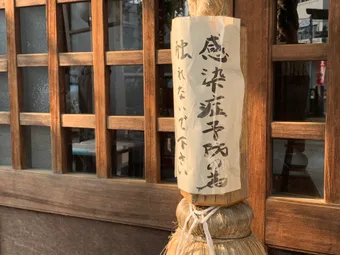 感染症予防の為
触れないで下さい